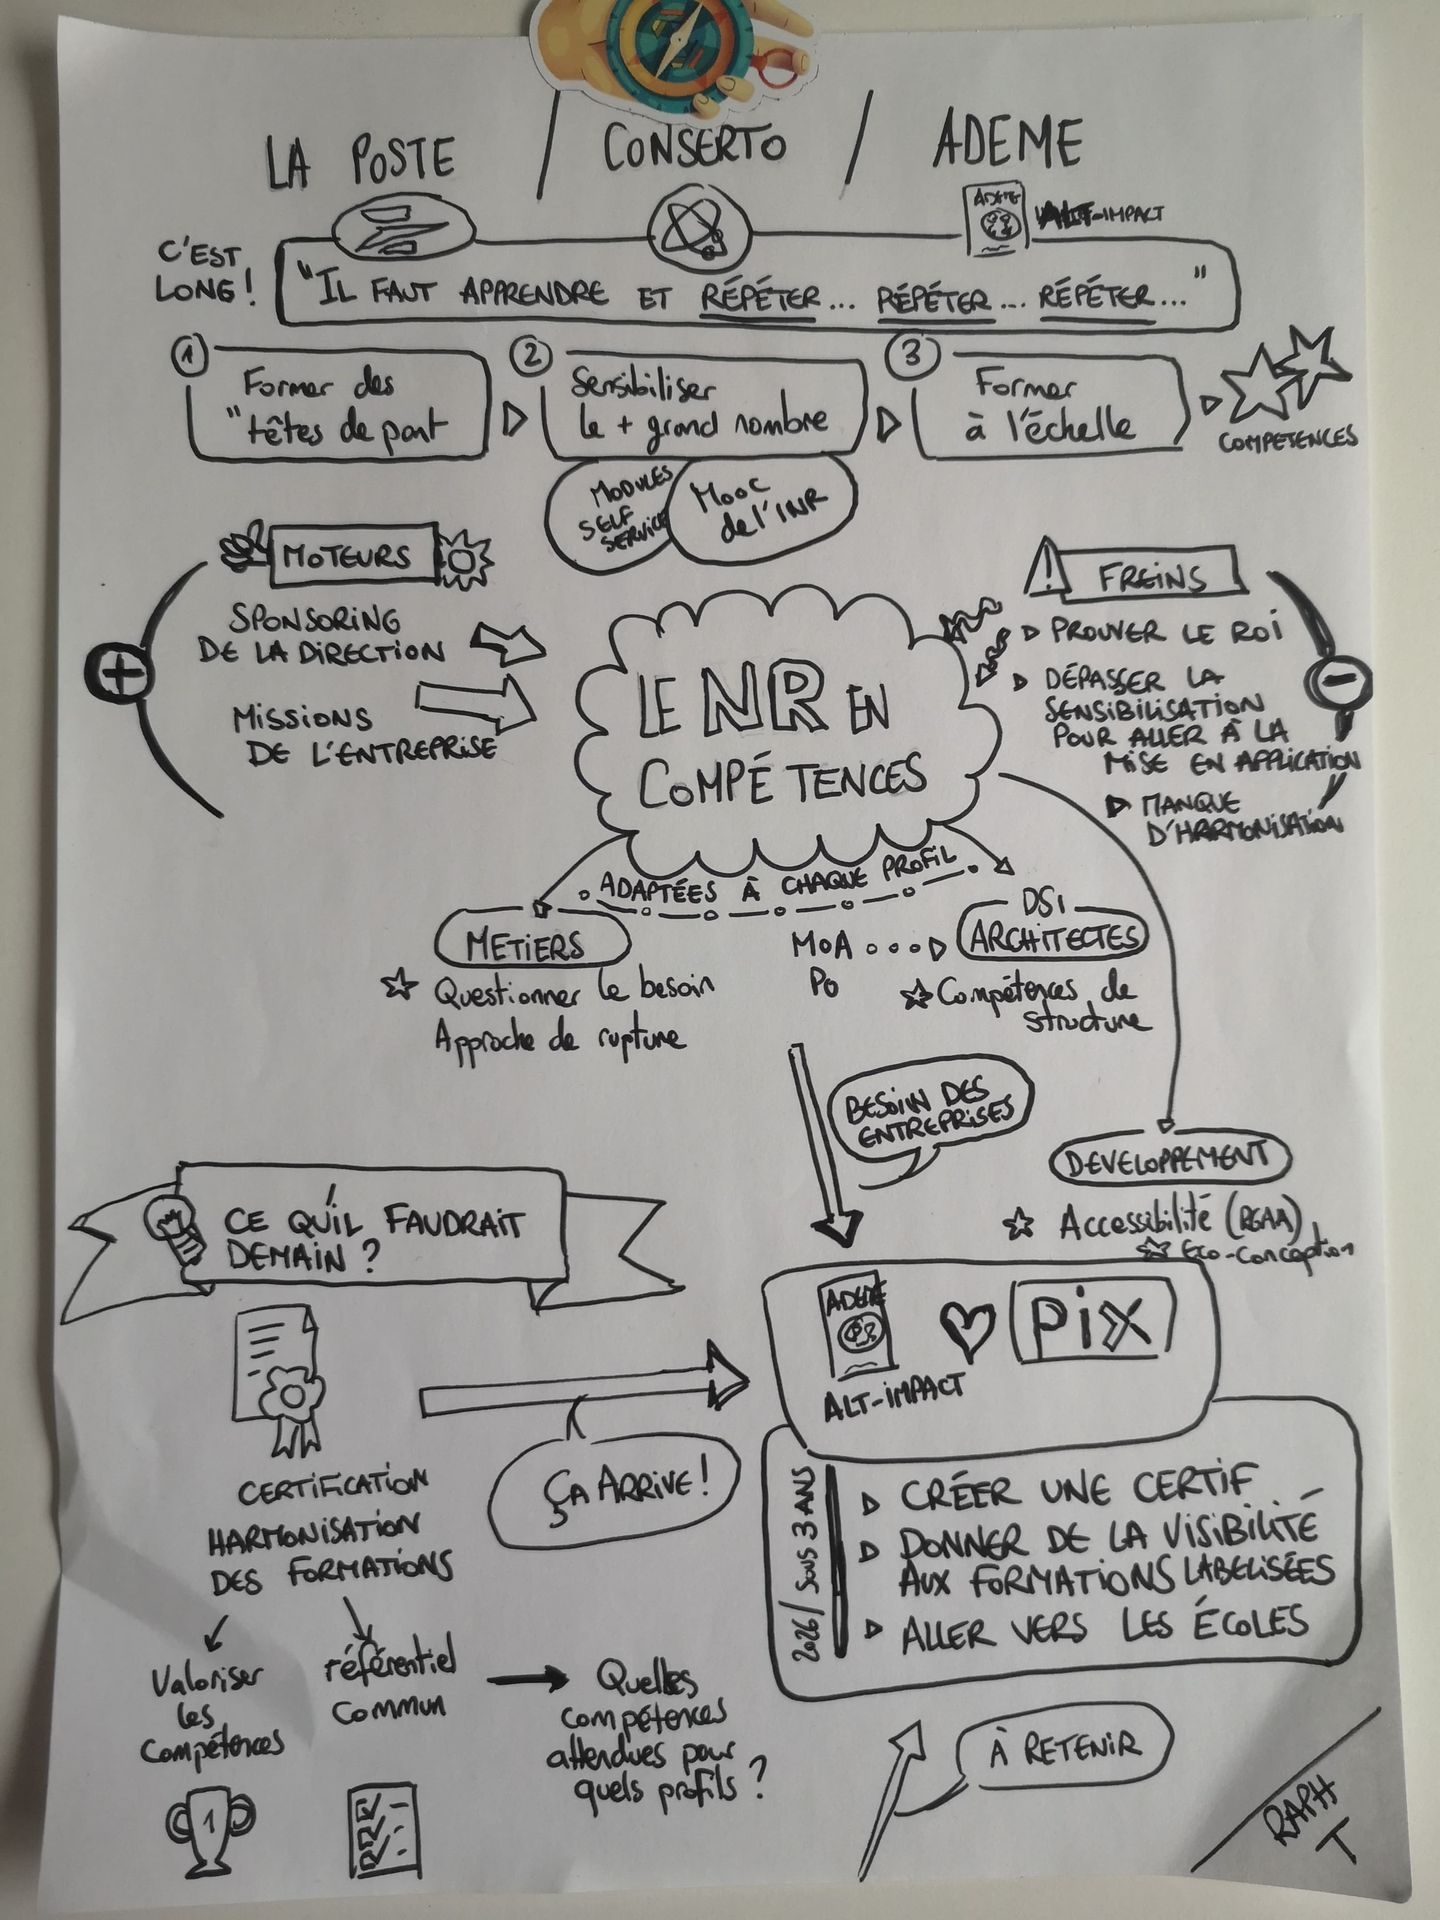 LA POSTE / CONSERTO / ADEME
ADEME
ALT-IMPACT
C'EST
LONG !
"IL FAUT APPRENDRE ET RÉPÉTER... RÉPÉTER... RÉPÉTER..."
1
Former des
"têtes de pont
2
Sensibiliser
le + grand nombre
3
Former
à l'échelle
COMPETENCES
MODULES
SELF
SERVICE
MOOC
de l'INR
MOTEURS
+
SPONSORING
DE LA DIRECTION
MISSIONS
DE L'ENTREPRISE
LE NR EN
COMPÉTENCES
! FREINS
-
PROUVER LE ROI
DÉPASSER LA
SENSIBILISATION
POUR ALLER À LA
MISE EN APPLICATION
MANQUE
D'HARMONISATION
ADAPTÉES À CHAQUE PROFIL
METIERS
Questionner le besoin
Approche de rupture
MOA
PO
DSI
ARCHITECTES
Compétences de
structure
BESOIN DES
ENTREPRISES
DEVELOPPEMENT
Accessibilité (RGAA)
Eco-conception
CE QU'IL FAUDRAIT
DEMAIN ?
ADEME
ALT-IMPACT
Pix
ÇA ARRIVE !
CERTIFICATION
HARMONISATION
DES FORMATIONS
2026/ SOUS 3 ANS
CRÉER UNE CERTIF
DONNER DE LA VISIBILITÉ
AUX FORMATIONS LABELISÉES
ALLER VERS LES ÉCOLES
Valoriser
les
compétences
référentiel
commun
Quelles
compétences
attendues pour
quels profils ?
1
À RETENIR
RAPH
T